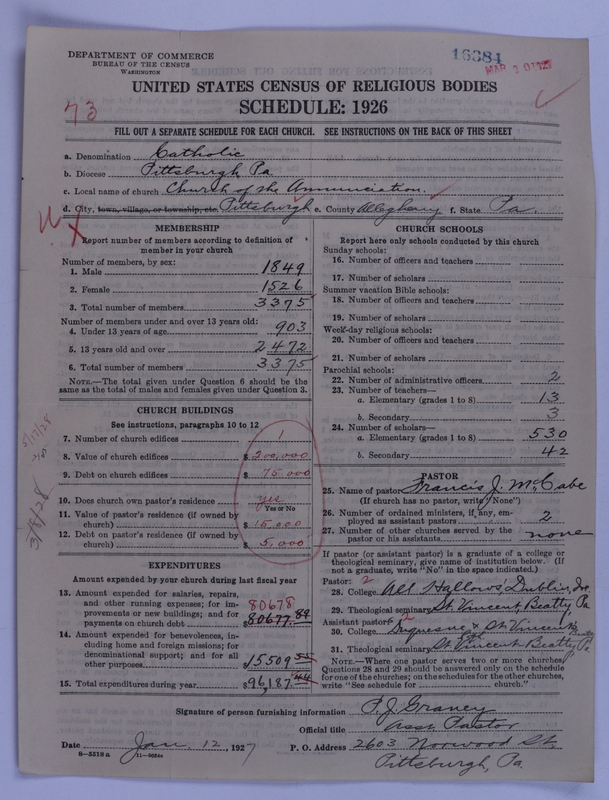 DEPARTMENT OF COMMERCE
BUREAU OF THE CENSUS
WASHINGTON
16384
MAR 10 1927
UNITED STATES CENSUS OF RELIGIOUS BODIES
73
SCHEDULE: 1926
FILL OUT A SEPARATE SCHEDULE FOR EACH CHURCH. SEE INSTRUCTIONS ON THE BACK OF THIS SHEET
a. Denomination Catholic
b. Diocese Pittsburgh Pa.
c. Local name of church Church of the Annunciation.
d. City, town, village, or township, etc. Pittsburgh e. County Allegheny f. State Pa.
MEMBERSHIP
Report number of members according to definition of
member in your church
Number of members, by sex:
1. Male 1849
2. Female 1526
3. Total number of members 3375
Number of members under and over 13 years old:
4. Under 13 years of age 903
5. 13 years old and over 2472
6. Total number of members 3375
NOTE.—The total given under Question 6 should be the
same as the total of males and females given under Question 3.
CHURCH BUILDINGS
See instructions, paragraphs 10 to 12
7. Number of church edifices 1
8. Value of church edifices $200,000
9. Debt on church edifices $75,000
10. Does church own pastor's residence yes
Yes or No
11. Value of pastor's residence (if owned by
church) $15,000
12. Debt on pastor's residence (if owned by
church) $5,000
3/8/28
EXPENDITURES
Amount expended by your church during last fiscal year
13. Amount expended for salaries, repairs,
and other running expenses; for im-
provements or new buildings; and for
payments on church debt 80678
$80677.89
14. Amount expended for benevolences, in-
cluding home and foreign missions; for
denominational support; and for all
other purposes 15509
15. Total expenditures during year $96,187
CHURCH SCHOOLS
Report here only schools conducted by this church
Sunday schools:
16. Number of officers and teachers
17. Number of scholars
Summer vacation Bible schools:
18. Number of officers and teachers
19. Number of scholars
Week-day religious schools:
20. Number of officers and teachers
21. Number of scholars
Parochial schools:
22. Number of administrative officers 2
23. Number of teachers—
a. Elementary (grades 1 to 8) 13
b. Secondary 3
24. Number of scholars—
a. Elementary (grades 1 to 8) 530
b. Secondary 42
PASTOR
25. Name of pastor Francis J. McCabe
(If church has no pastor, write "None")
26. Number of ordained ministers, if any, em-
ployed as assistant pastors 2
27. Number of other churches served by the
pastor or his assistants none
If pastor (or assistant pastor) is a graduate of a college or
theological seminary, give name of institution below. (If
not a graduate, write "No" in the space indicated.)
Pastor: 2
28. College All Hallows' Dublin, Ire.
29. Theological seminary St. Vincent Beatty, Pa
Assistant pastor: 2
30. College Duquesne & St. Vincent's Beatty
31. Theological seminary St. Vincent Beatty, Pa.
NOTE.—Where one pastor serves two or more churches,
Questions 28 and 29 should be answered only on the schedule
for one of the churches; on the schedules for the other churches,
write "See schedule for church."
Signature of person furnishing information P.J. Graney
Official title Asst Pastor
Date Jan. 12, 1927 P. O. Address 2603 Norwood St.
8—5518a 11—9084a
Pittsburgh, Pa.